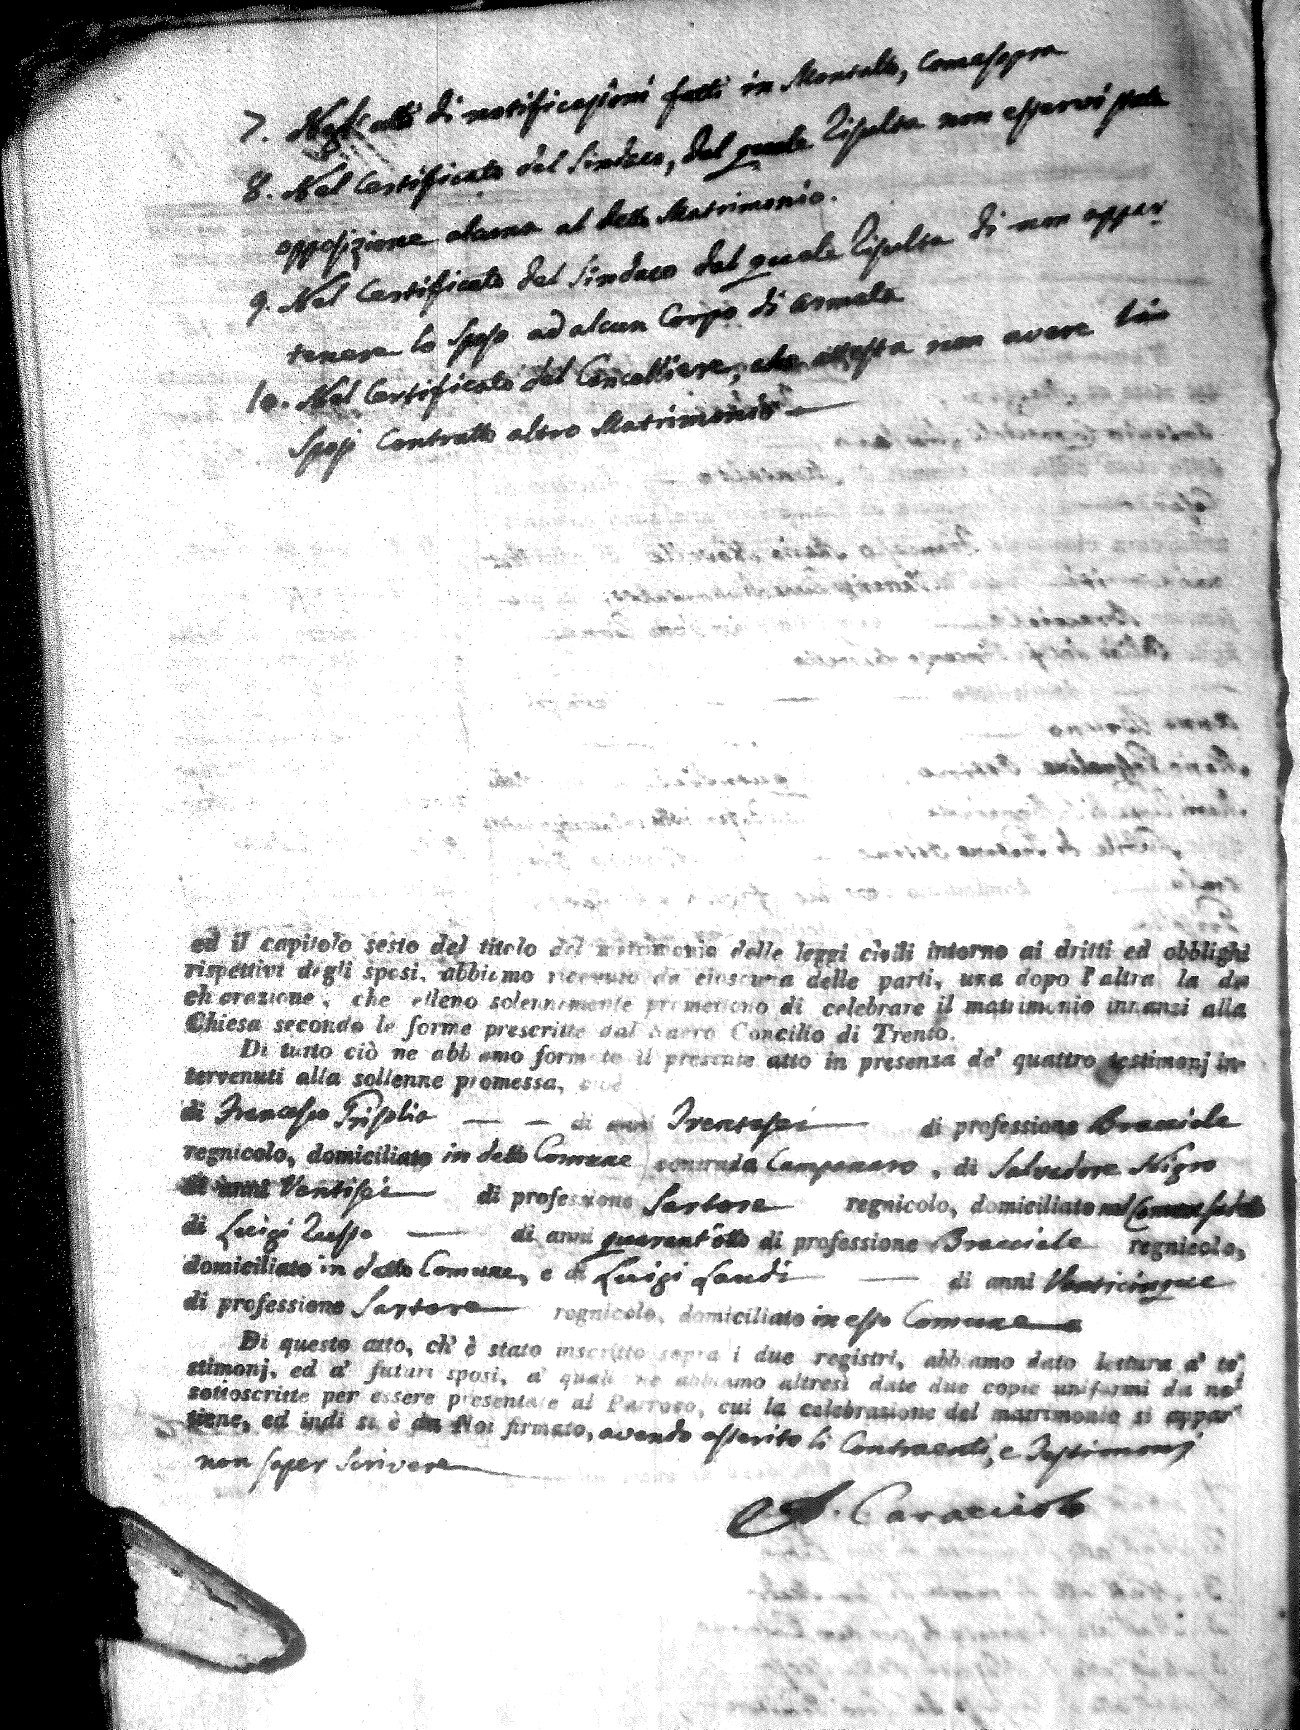 7. Negli atti di notificazioni fatti in Montalto, Comesopra
8. Nel Certificato del Sindaco, dal quale risulta non esservi stata
opposizione alcuna al detto Matrimonio.
9. Nel Certificato del Sindaco dal quale risulta di non appar
tenere lo sposo ad alcun Corpo di armata
10. Nel Certificato del Cancelliere, che attesta non avere li
Sposi Contratto altro Matrimonio
ed il capitolo sesto del titolo del matrimonio delle leggi civili intorno ai dritti ed obblighi
rispettivi degli sposi, abbiamo ricevuto da ciascuna delle parti, una dopo l'altra la di
chiarazione, che elleno solennemente promettono di celebrare il matrimonio innanzi alla
Chiesa secondo le forme prescritte dal Sacro Concilio di Trento.
Di tutto ciò ne abbiamo formato il presente atto in presenza de' quattro testimonj in-
tervenuti alla sollenne promessa, cioè
di Francesco Frisolio — — di anni Trentasei di professione Bracciale
regnicolo, domiciliato in detto Comune contrada Campanaro, di Salvadore Nigro
di anni Ventisei di professione Sartore regnicolo, domiciliato nel Comune
di Luigi Russo — di anni quarant'otto di professione Bracciale regnicolo,
domiciliato in detto Comune, e di Luigi Laudi — di anni Venticinque
di professione Sartore regnicolo, domiciliato in esso Comune
Di questo atto, ch' è stato inscritto sopra i due registri, abbiamo dato lettura a' te-
stimonj, ed a' futuri sposi, a' quali ne abbiamo altresì date due copie uniformi da noi
sottoscritte per essere presentate al Parroco, cui la celebrazione del matrimonio si appar-
tiene, ed indi si è da Noi firmato, avendo asserito li Contraenti, e Testimonj
non saper Scrivere
Caracciolo